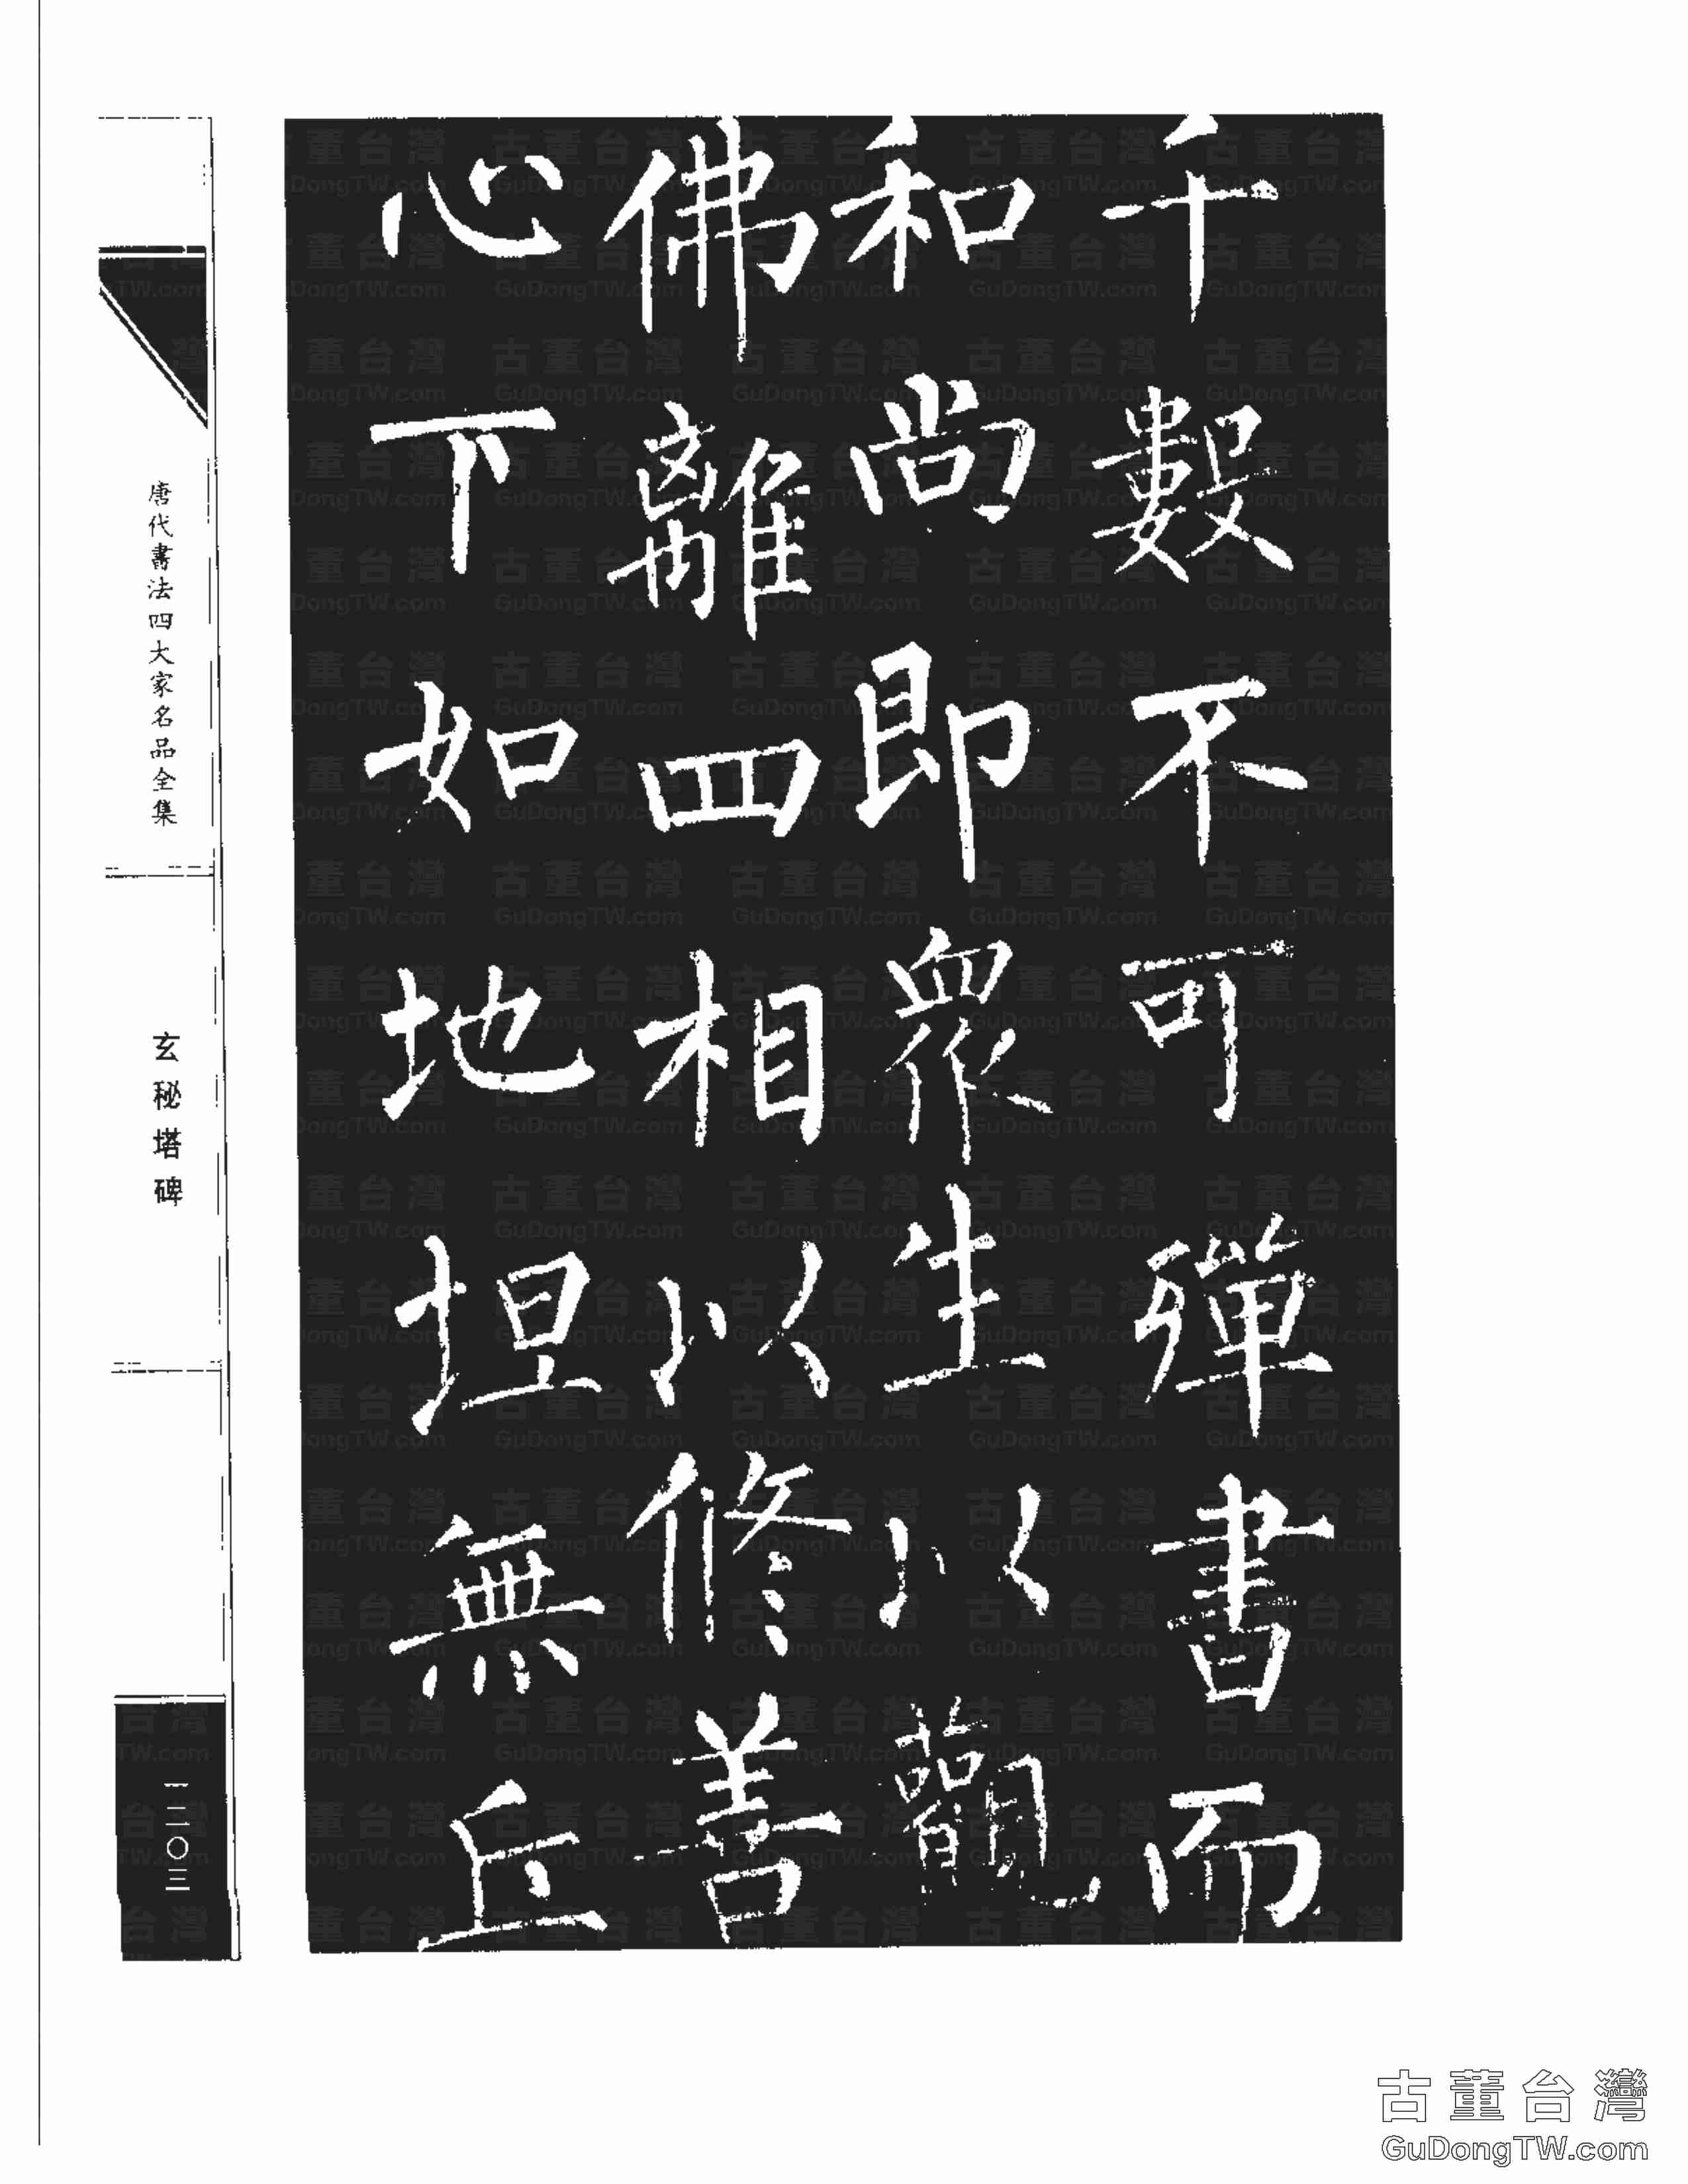 千數不可殫書而
和尚即衆生以觀
佛離四相以修善
心下如地坦無丘
唐代書法四大家名品全集
玄秘塔碑
一二〇三
古董台灣
GuDongTW.com